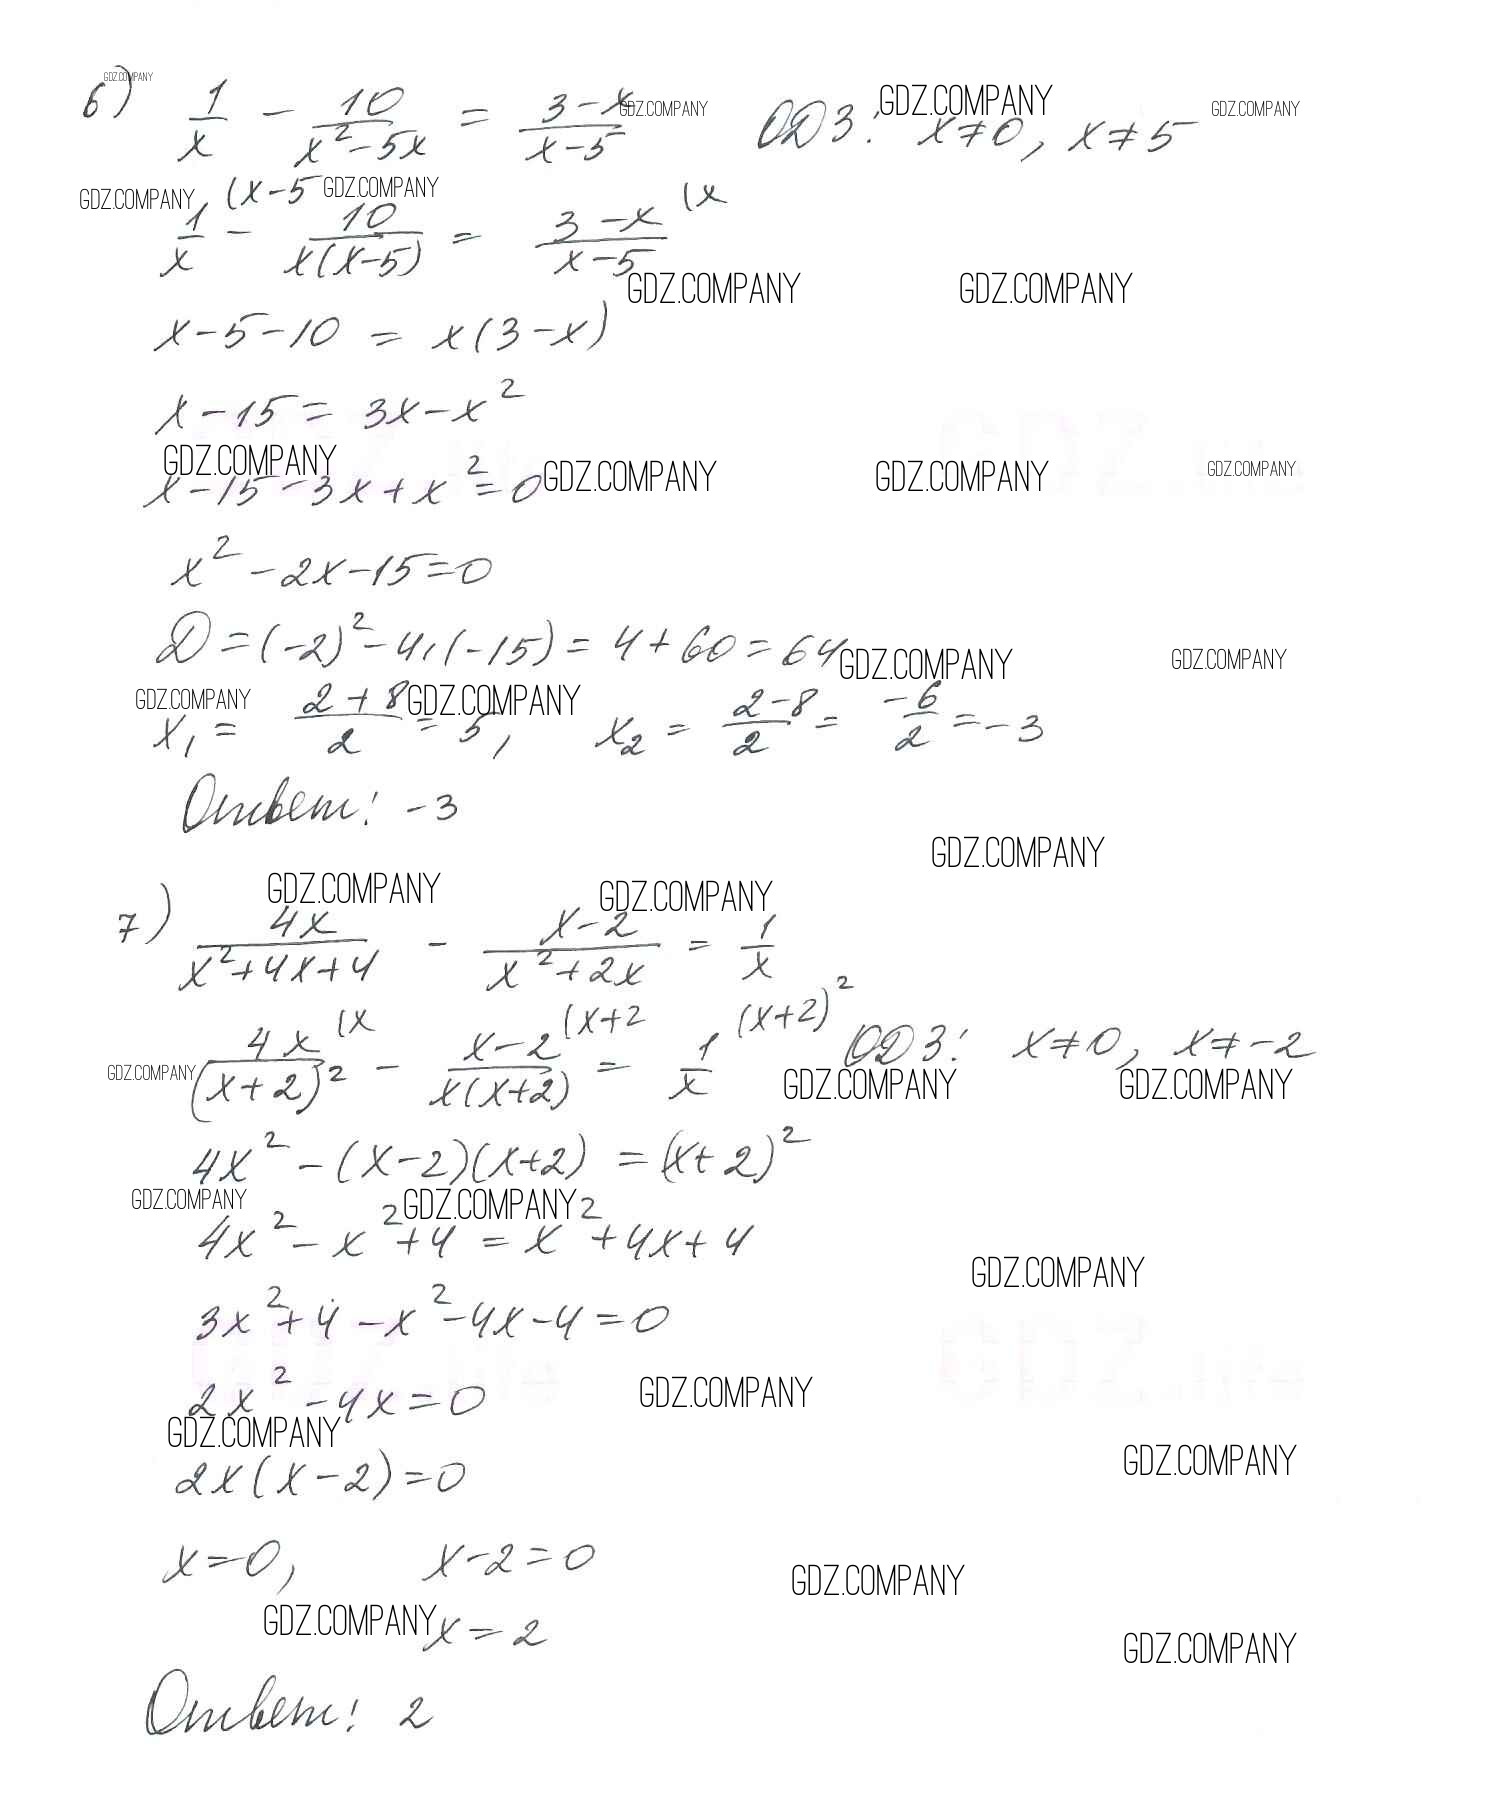 GDZ.COMPANY
6) 1/x - 10/(x² - 5x) = (3 - x)/(x - 5) ОДЗ: x ≠ 0, x ≠ 5
GDZ.COMPANY GDZ.COMPANY GDZ.COMPANY
1/x (x - 5 - 10/(x(x - 5)) = (3 - x)/(x - 5) (x
GDZ.COMPANY GDZ.COMPANY
GDZ.COMPANY GDZ.COMPANY
x - 5 - 10 = x(3 - x)
x - 15 = 3x - x²
GDZ.COMPANY GDZ.COMPANY GDZ.COMPANY GDZ.COMPANY
x - 15 - 3x + x² = 0
x² - 2x - 15 = 0
D = (-2)² - 4·(-15) = 4 + 60 = 64
GDZ.COMPANY GDZ.COMPANY
GDZ.COMPANY GDZ.COMPANY
x₁ = (2 + 8)/2 = 5, x₂ = (2 - 8)/2 = -6/2 = -3
Ответ: -3
GDZ.COMPANY
GDZ.COMPANY GDZ.COMPANY
7) 4x/(x² + 4x + 4) - (x - 2)/(x² + 2x) = 1/x
4x/(x + 2)² (x - (x - 2)/(x(x + 2)) (x + 2 = 1/x (x + 2)² ОДЗ: x ≠ 0, x ≠ -2
GDZ.COMPANY GDZ.COMPANY GDZ.COMPANY
4x² - (x - 2)(x + 2) = (x + 2)²
GDZ.COMPANY GDZ.COMPANY
4x² - x² + 4 = x² + 4x + 4
GDZ.COMPANY
3x² + 4 - x² - 4x - 4 = 0
2x² - 4x = 0
GDZ.COMPANY
GDZ.COMPANY
GDZ.COMPANY
2x(x - 2) = 0
x = 0, x - 2 = 0
GDZ.COMPANY
GDZ.COMPANY
x = 2
GDZ.COMPANY
Ответ: 2